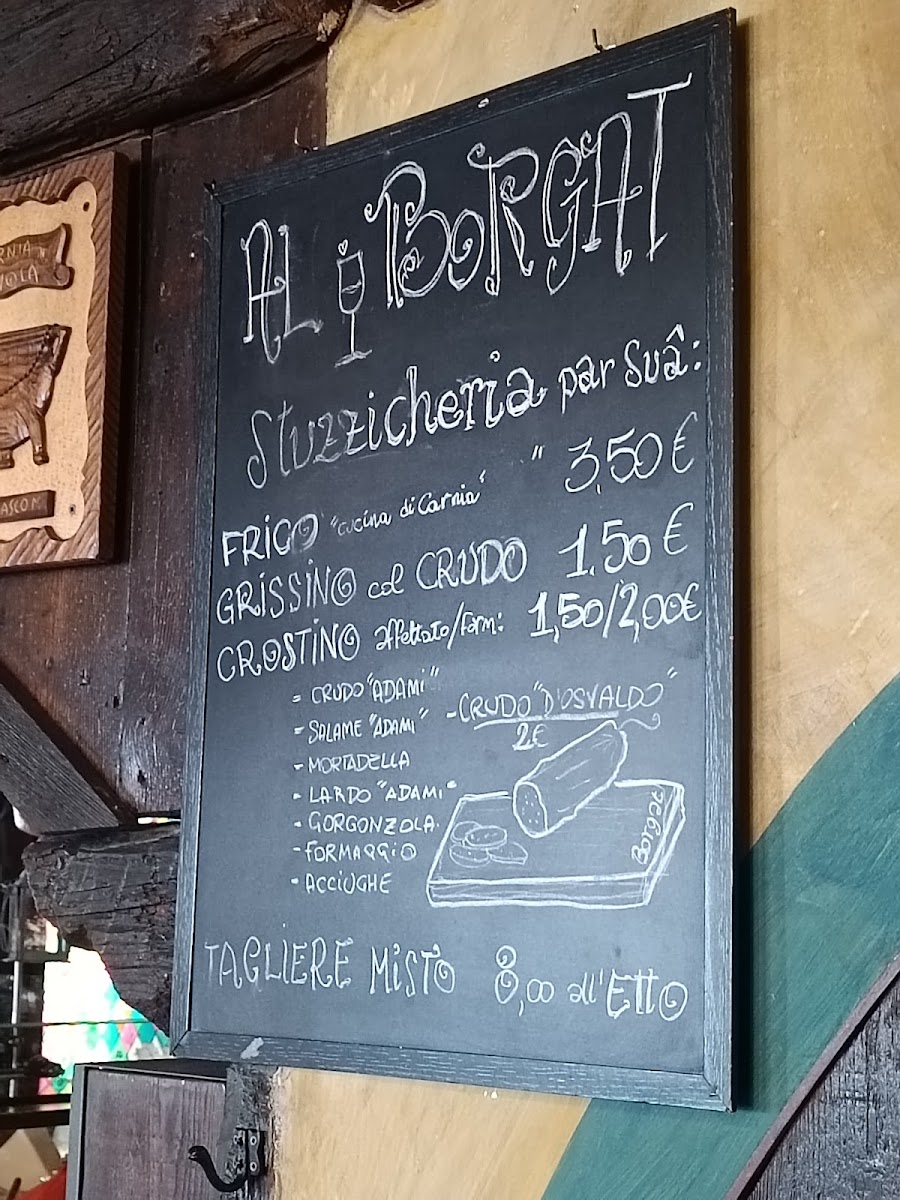 AL BORGAT
Stuzzicheria par Suâ:
FRICO "cucina di Carnia" " 3,50 €
GRISSINO col CRUDO 1,50 €
CROSTINO affettato/form: 1,50/2,00€
= CRUDO "ADAMI"
- SALAME "ADAMI"
- CRUDO "D'OSVALDO"
2€
- MORTADELLA
- LARDO "ADAMI"
- GORGONZOLA
- FORMAGGIO
- ACCIUGHE
Borgat
TAGLIERE MISTO 8,00 all'ETTO